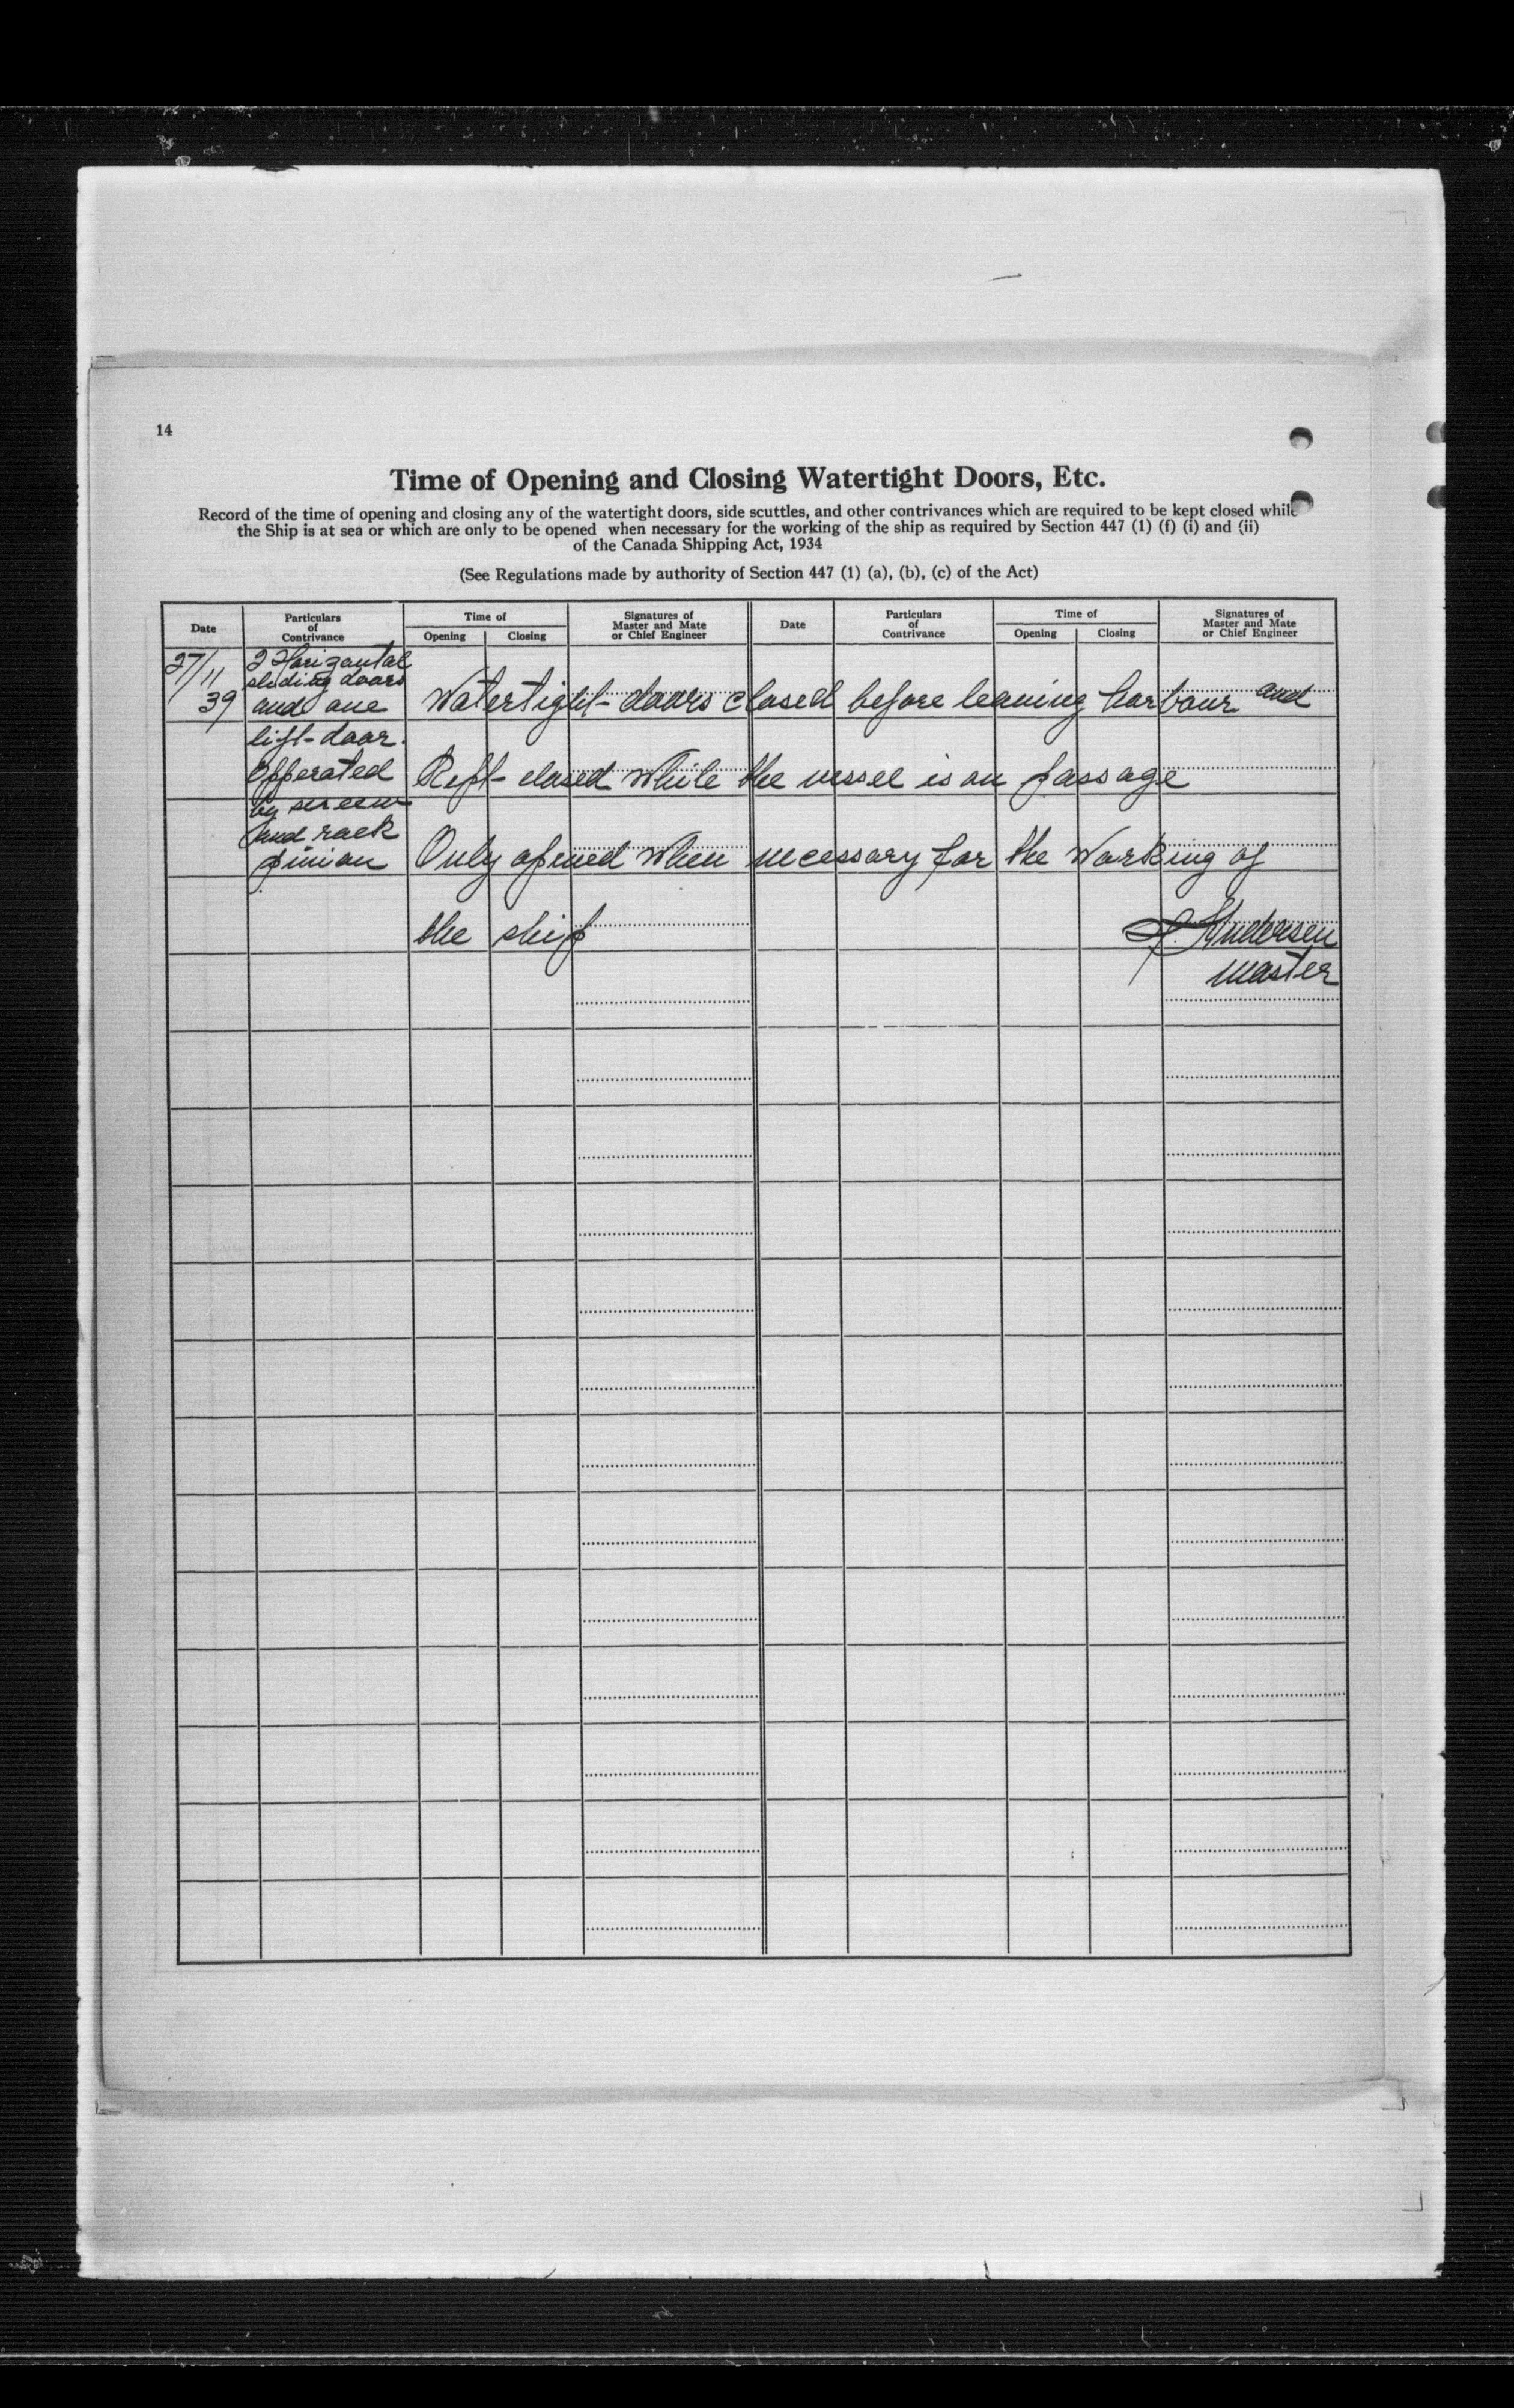 14
Time of Opening and Closing Watertight Doors, Etc.
Record of the time of opening and closing any of the watertight doors, side scuttles, and other contrivances which are required to be kept closed while
the Ship is at sea or which are only to be opened when necessary for the working of the ship as required by Section 447 (1) (f) (i) and (ii)
of the Canada Shipping Act, 1934
(See Regulations made by authority of Section 447 (1) (a), (b), (c) of the Act)
Date Particulars of Contrivance Time of Opening Closing Signatures of Master and Mate or Chief Engineer Date Particulars of Contrivance Time of Opening Closing Signatures of Master and Mate or Chief Engineer
27/11 39
2 Horizontal
sliding doors
and one
lift-door.
Opperated
by screew
and rack
pinion
Watertight-doors closed before leaving harbour and
Kept closed while the vessel is on passage
Only opened when necessary for the working of
the ship
Andersen
master